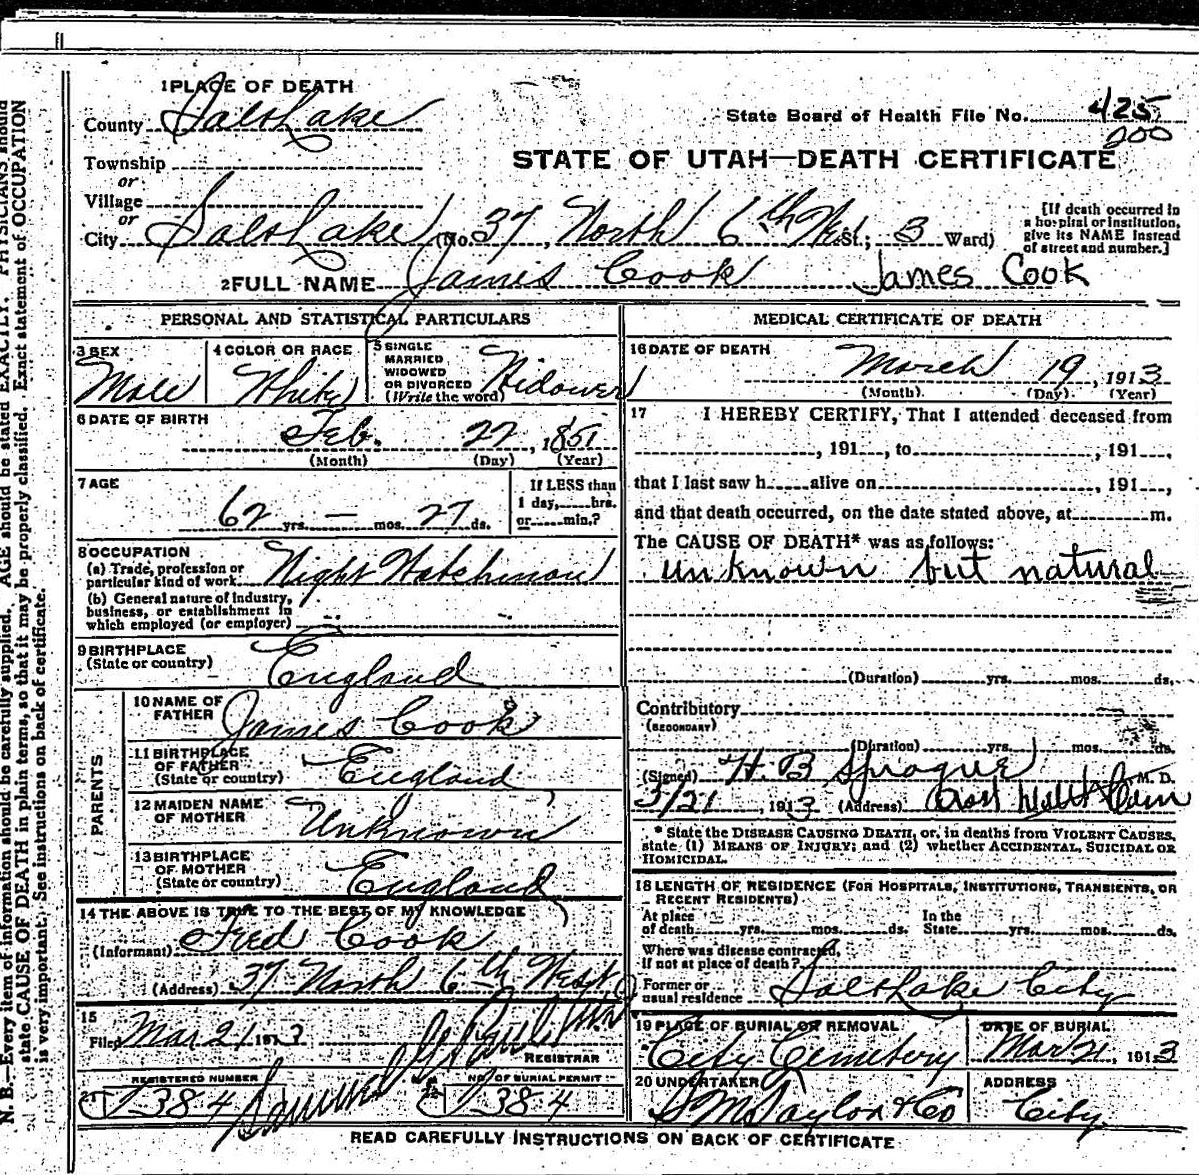 1 PLACE OF DEATH
County Salt Lake
State Board of Health File No. 425
200
Township
or
STATE OF UTAH—DEATH CERTIFICATE
Village
or
City Salt Lake (No. 37, North 6th West St.; 3 Ward)
[If death occurred in
a hospital or institution,
give its NAME instead
of street and number.]
2 FULL NAME James Cook James Cook
PERSONAL AND STATISTICAL PARTICULARS
3 SEX
Male
4 COLOR OR RACE
White
5 SINGLE
MARRIED
WIDOWED
OR DIVORCED
(Write the word)
Widower
6 DATE OF BIRTH
Feb. 22, 1851
(Month) (Day) (Year)
7 AGE
62 yrs. — mos. 27 ds.
If LESS than
1 day, hrs.
or min.?
8 OCCUPATION
(a) Trade, profession or
particular kind of work
Night Watchman
(b) General nature of industry,
business, or establishment in
which employed (or employer)
9 BIRTHPLACE
(State or country)
England
PARENTS
10 NAME OF
FATHER
James Cook
11 BIRTHPLACE
OF FATHER
(State or country)
England
12 MAIDEN NAME
OF MOTHER
Unknown
13 BIRTHPLACE
OF MOTHER
(State or country)
England
14 THE ABOVE IS TRUE TO THE BEST OF MY KNOWLEDGE
(Informant) Fred Cook
(Address) 37 North 6th West
15
Filed Mar 21 1913
REGISTRAR
REGISTERED NUMBER
384
Samuel G Paul
NO. OF BURIAL PERMIT
384
MEDICAL CERTIFICATE OF DEATH
16 DATE OF DEATH
March 19, 1913
(Month) (Day) (Year)
17 I HEREBY CERTIFY, That I attended deceased from
, 191 , to , 191 ,
that I last saw h alive on , 191 ,
and that death occurred, on the date stated above, at m.
The CAUSE OF DEATH* was as follows:
unknown but natural
(Duration) yrs. mos. ds.
Contributory
(SECONDARY)
(Duration) yrs. mos. ds.
(Signed) H. B Sprague M. D.
3/21, 1913 (Address)
* State the DISEASE CAUSING DEATH, or, in deaths from VIOLENT CAUSES,
state (1) MEANS OF INJURY; and (2) whether ACCIDENTAL, SUICIDAL OR
HOMICIDAL.
18 LENGTH OF RESIDENCE (FOR HOSPITALS, INSTITUTIONS, TRANSIENTS, OR
RECENT RESIDENTS)
At place
of death yrs. mos. ds.
In the
State yrs. mos. ds.
Where was disease contracted,
If not at place of death?
Former or
usual residence Salt Lake City
19 PLACE OF BURIAL OR REMOVAL
City Cemetery
DATE OF BURIAL
Mar 21, 1913
20 UNDERTAKER
S M Taylor & Co
ADDRESS
City
READ CAREFULLY INSTRUCTIONS ON BACK OF CERTIFICATE
N. B.—Every item of information should be carefully supplied. AGE should be stated EXACTLY. PHYSICIANS should
state CAUSE OF DEATH in plain terms, so that it may be properly classified. Exact statement of OCCUPATION
is very important. See instructions on back of certificate.